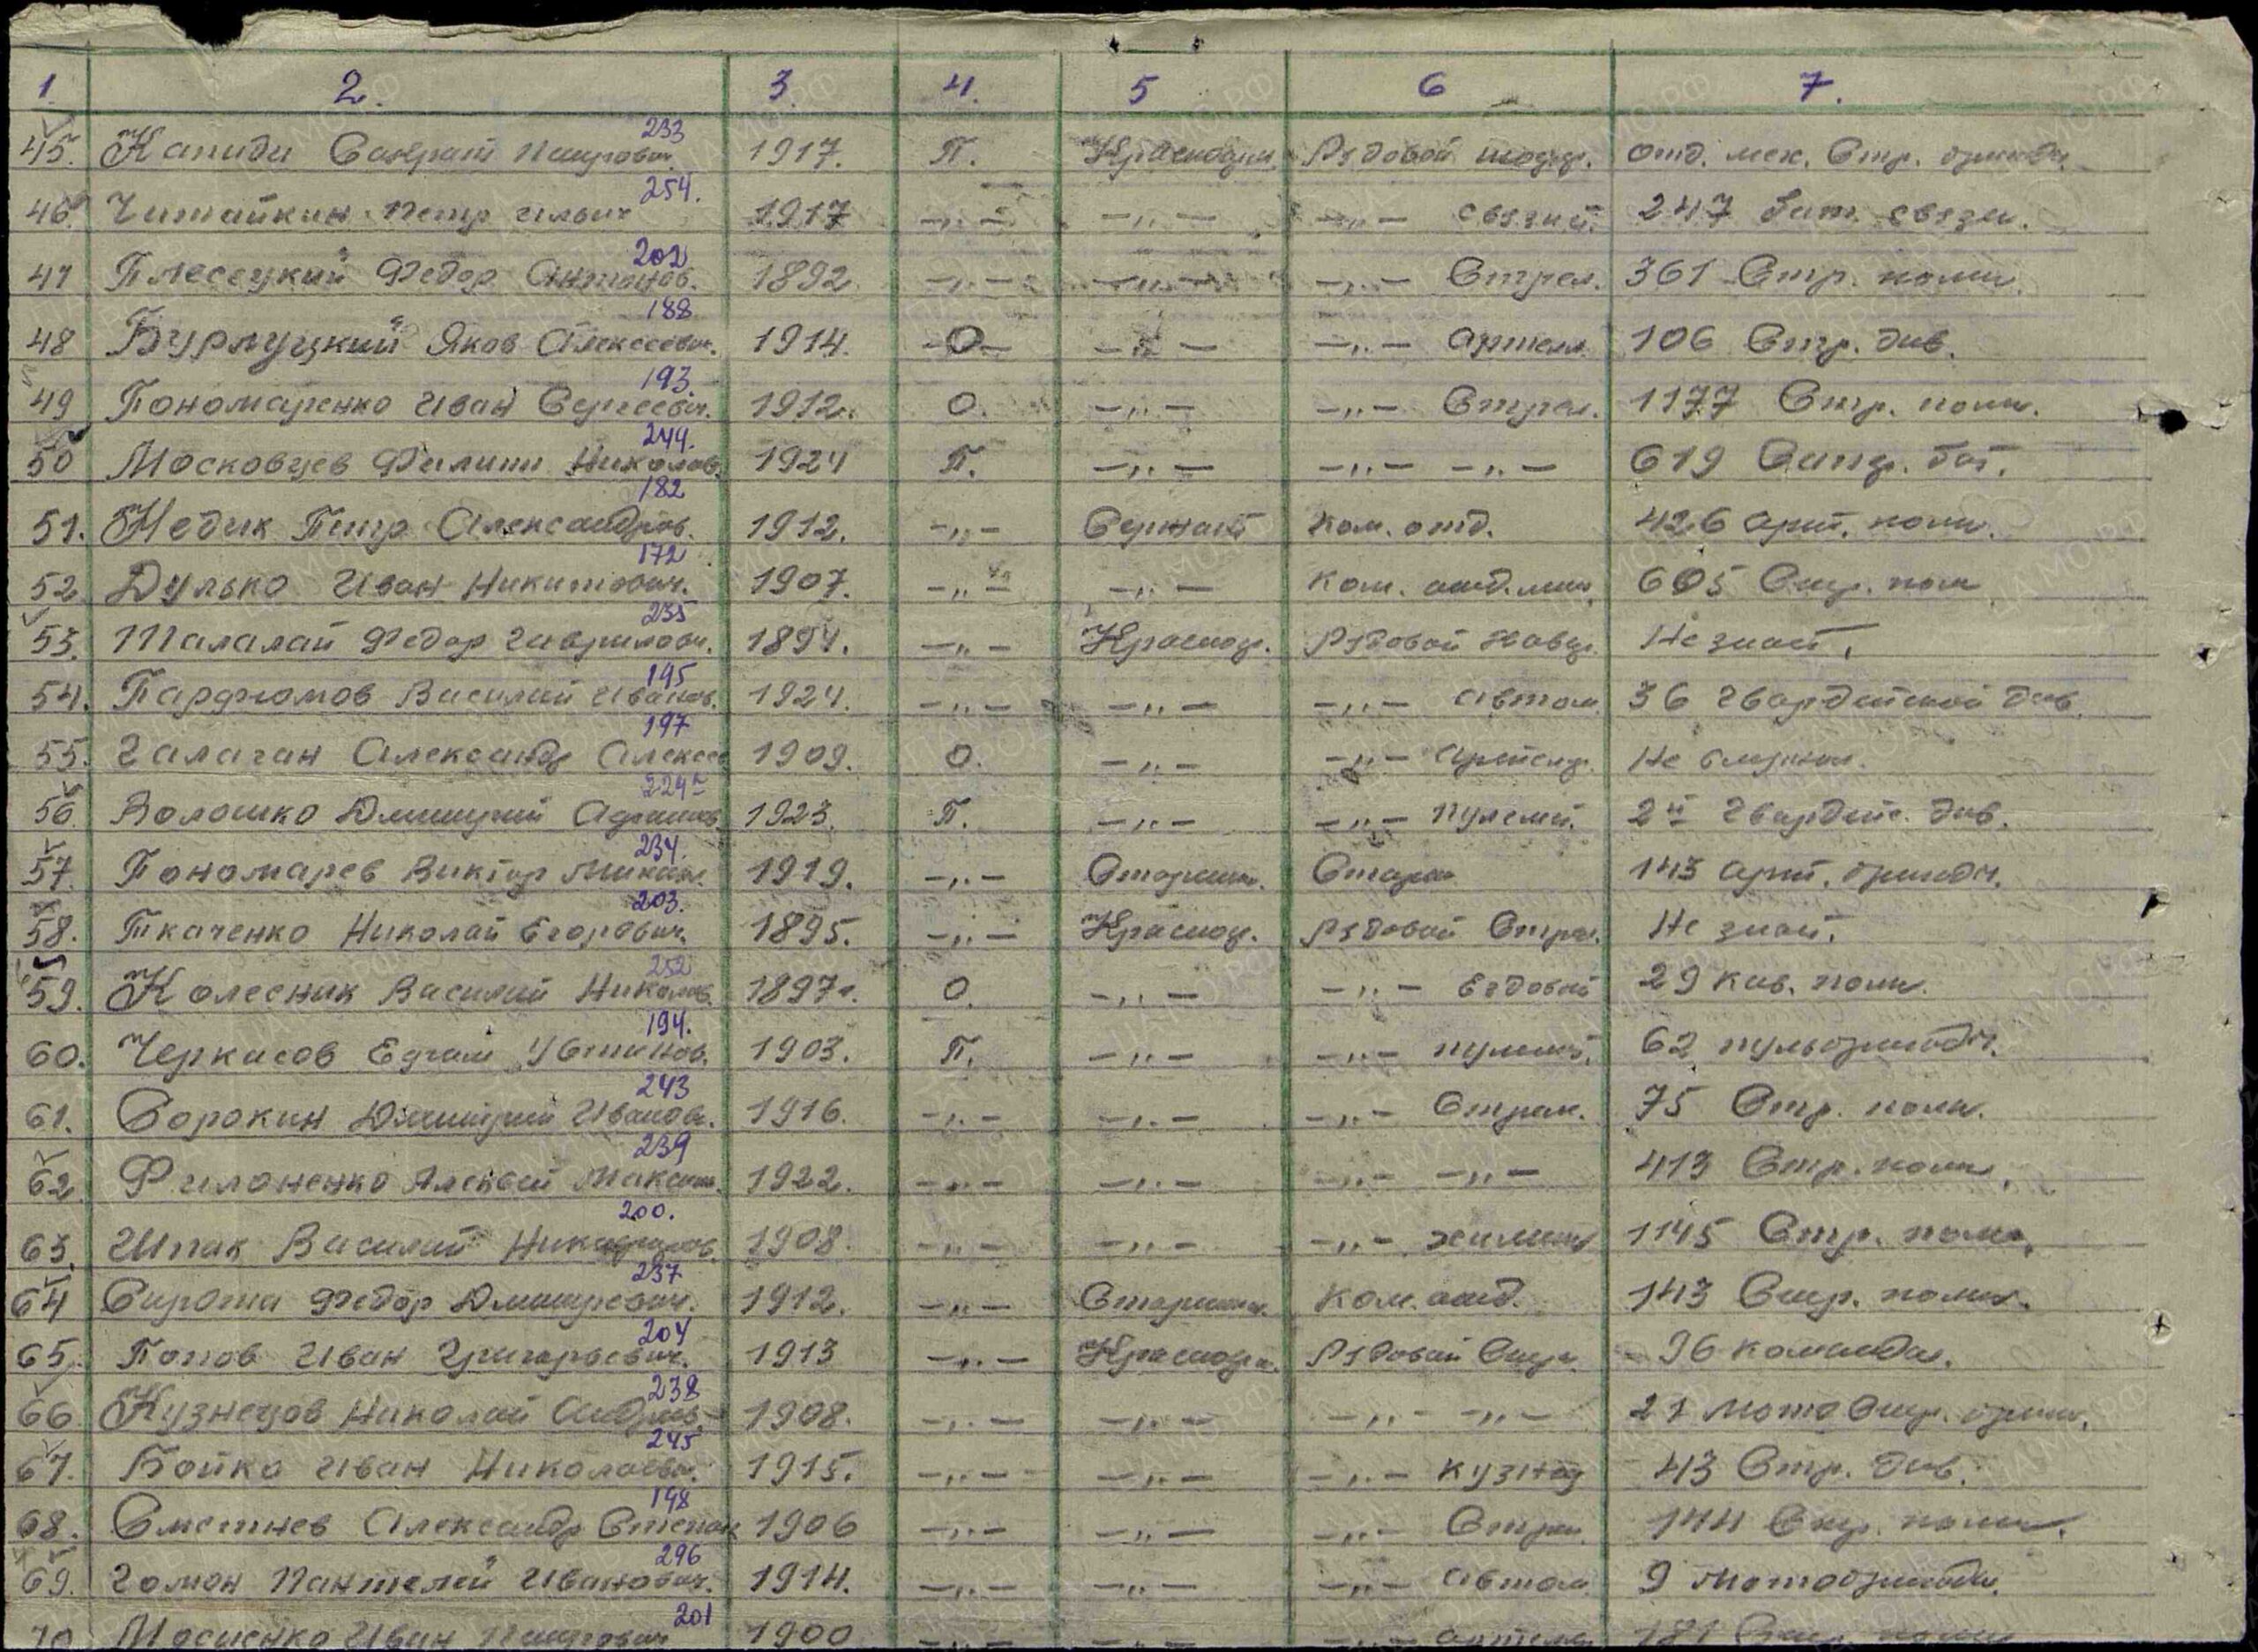 1. 2. 3. 4. 5 6 7.
233
45. Капиди Сократ 1917. П. Рядовой отд. мех. Стр.
254.
46 Читайкин Петр Ильич 1917 -„- -„- -„- связист. 247 бат. связи.
202
47 Плесецкий Федор Антонов. 1892 -„- -„- -„- Стрел. 361 Стр. полк.
188
48 Бурлуцкий Яков Алексеевич. 1914. О -„- -„- 106 Стр. див.
193.
49 Пономаренко Иван Сергеевич. 1912. О. -„- -„- Стрел. 1177 Стр. полк.
244.
50 Московцев Филипп Николав. 1924 П. -„- -„- -„- 619 бат.
182
51. Недик Петр Александров. 1912. -„- Сержант Ком. отд. 426 Арт. полк.
172
52 Дулько Иван Никитович. 1907. -„- -„- Ком. отд. мин. 605 Стр. полк
235
53. Талалай Федор Гаврилович. 1894. -„- Красноар. Рядовой Не знает.
195
54. Парфюмов Василий Иванов. 1924. -„- -„- -„- Автом. 36 Гвардейской Див.
197
55. Галаган Александр Алексее 1909. О. -„- -„- Не
224
56 Волошко Дмитрий 1923. П. -„- -„- Пулемет. 2й Гвардейс. Див.
234.
57. Пономарев Виктор Михайл. 1919. -„- Старшин. 143 Арт. бригады.
203.
58. Ткаченко Николай Егорович. 1895. -„- Красноар. Рядовой Стрел. Не знает.
252
59. Колесник Василий Николав. 1897г. О. -„- -„- Ездовой 29 Кав. полк.
194.
60. Черкасов Ефим Устинов. 1903. П. -„- -„- пулемет. 62
243
61. Сорокин Дмитрий Иванов. 1916. -„- -„- -„- Стрел. 75 Стр. полк.
239
62 Филоненко Алексей Максим. 1922. -„- -„- -„- -„- 413 Стр. полк.
200.
63. Шпак Василий Никифоров. 1908. -„- -„- -„- химик 1145 Стр. полк.
237
64 Сирота Федор Дмитревич. 1912. -„- Старшина Ком. отд. 143 Стр. полк.
204
65. Попов Иван Григорьевич. 1913 -„- Красноар. Рядовой Стр. 96
238
66 Кузнецов Николай Андреев. 1908. -„- -„- -„- -„- 21 Мото Стр. бриг.
245
67. Бойко Иван Николаевич. 1915. -„- -„- -„- кузнец 43 Стр. Див.
198
68. Сметнев Александр Степан 1906 -„- -„- -„- Стрел. 144 Стр. полк.
296
69. Гомон Пантелей Иванович. 1914. -„- -„- -„- Автом. 9 Мотобригады.
201
70 Мосиенко Иван 1900 -„- -„- -„- 181 Стр. полк